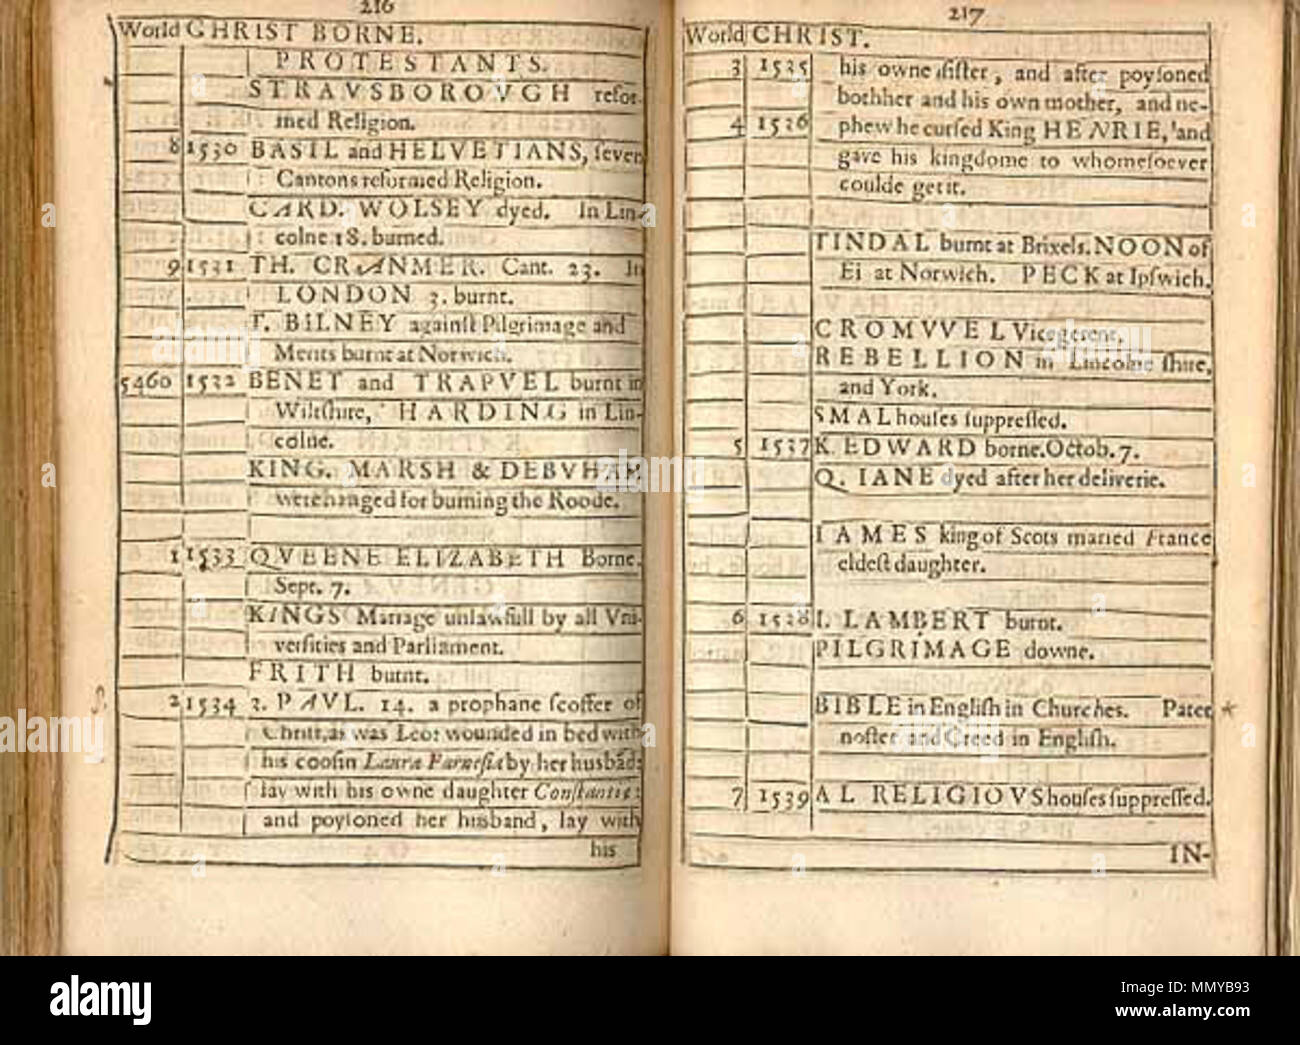 216
World CHRIST BORNE.
PROTESTANTS.
STRAVSBOROVGH refor-
med Religion.
8 1530 BASIL and HELVETIANS, ſeven
Cantons reformed Religion.
CARD. WOLSEY dyed. In Lin-
colne 18. burned.
9 1531 TH. CRANMER. Cant. 23. In
LONDON 3. burnt.
T. BILNEY againſt Pilgrimage and
Merits burnt at Norwich.
5460 1532 BENET and TRAPVEL burnt in
Wiltſhire, HARDING in Lin-
colne.
KING. MARSH & DEBVHAM
were hanged for burning the Roode.
1 1533 QVEENE ELIZABETH Borne.
Sept. 7.
KINGS Mariage unlawfull by all Vni-
verſities and Parliament.
FRITH burnt.
2 1534 3. PAVL. 14. a prophane ſcoffer of
Chriſt, as was Leo: wounded in bed with
his cooſin Laura Farneſia by her husbād:
lay with his owne daughter Conſtantia:
and poyſoned her husband, lay with
his
217
World CHRIST.
3 1535 his owne ſiſter, and after poyſoned
bothher and his own mother, and ne-
4 1536 phew he curſed King HENRIE, and
gave his kingdome to whomeſoever
coulde get it.
TINDAL burnt at Brixels. NOON of
Ei at Norwich. PECK at Ipſwich.
CROMVVEL Vicegerent.
REBELLION in Lincolne ſhire,
and York.
SMAL houſes ſuppreſſed.
5 1537 K. EDWARD borne. Octob. 7.
Q. IANE dyed after her deliverie.
IAMES king of Scots maried France
eldeſt daughter.
6 1538 I. LAMBERT burnt.
PILGRIMAGE downe.
BIBLE in Engliſh in Churches. Pater *
noſter and Creed in Engliſh.
7 1539 AL RELIGIOVS houſes ſuppreſſed.
IN-
a
alamy
alamy
Image ID: MMYB93
www.alamy.com